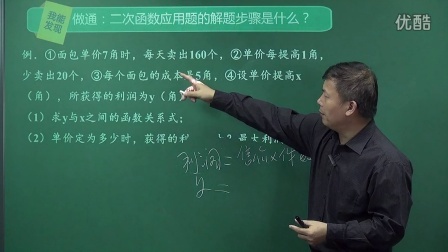 我能
发现
做通：二次函数应用题的解题步骤是什么？
YOUKU
例．①面包单价7角时，每天卖出160个，②单价每提高1角，
少卖出20个，③每个面包的成本是5角，④设单价提高x
（角），所获得的利润为y（角）
（1）求y与x之间的函数关系式；
（2）单价定为多少时，获得的利 最大利
利润＝售价×件
y ＝